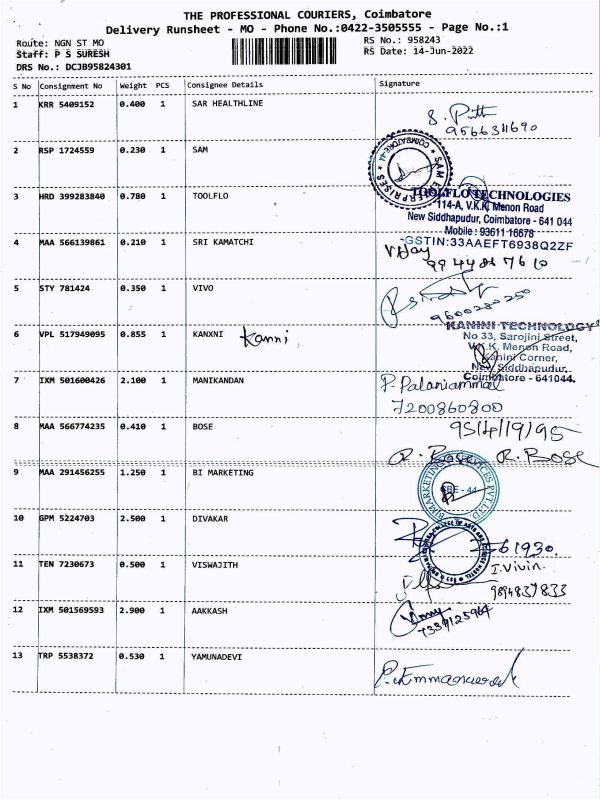 THE PROFESSIONAL COURIERS, Coimbatore
Delivery Runsheet - MO - Phone No.:0422-3505555 - Page No.:1
Route: NGN ST MO
RS No.: 958243
Staff: P S SURESH
RS Date: 14-Jun-2022
DRS No.: DCJB95824301
S No Consignment No Weight PCS Consignee Details Signature
1 KRR 5409152 0.400 1 SAR HEALTHLINE
9566311690
2 RSP 1724559 0.230 1 SAM
COIMBATORE-44 * SAM ENTERPRISES *
3 HRD 399283840 0.780 1 TOOLFLO
TOOLFLO TECHNOLOGIES
114-A, V.K.K. Menon Road
New Siddhapudur, Coimbatore - 641 044
Mobile : 93611 16678
GSTIN:33AAEFT6938Q2ZF
4 MAA 566139861 0.210 1 SRI KAMATCHI
Vijay
5 STY 781424 0.350 1 VIVO
9600280250
6 VPL 517949095 0.855 1 KANXNI Kanni
KANINI TECHNOLOGY
No 33, Sarojini Street,
V.K.K. Menon Road,
Kanini Corner,
New Siddhapudur,
Coimbatore - 641044.
7 IXM 501600426 2.100 1 MANIKANDAN
P. Palaniammal
7200860800
8 MAA 566774235 0.410 1 BOSE
R. Bose R. BOSE
9 MAA 291456255 1.250 1 BI MARKETING
CBE - 44
10 GPM 5224703 2.500 1 DIVAKAR
61930.
11 TEN 7230673 0.500 1 VISWAJITH
I. Vivin.
9894837833
12 IXM 501569593 2.900 1 AAKKASH
7339125964
13 TRP 5538372 0.530 1 YAMUNADEVI